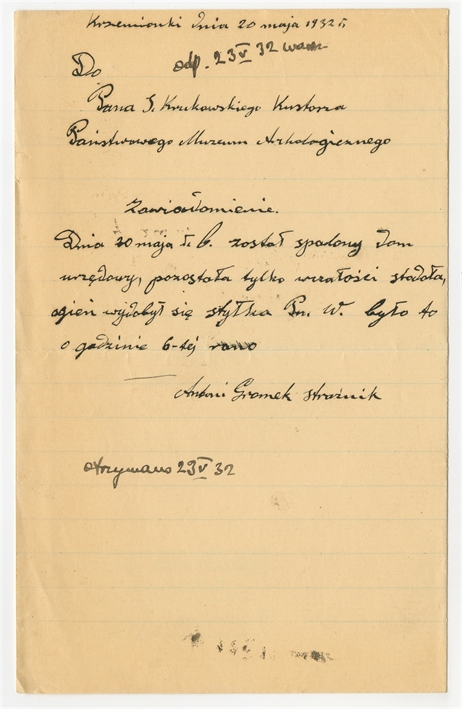 Krzemionki dnia 20 maja 1932 r,
odp. 23 V 32
Do
Pana S. Krukowskiego Kustosza
Państwowego Muzeum Arheologicznego
Zawiadomienie.
Dnia 20 maja b. został spalony dom
urzędowy, pozostała tylko wcałości stodała,
ogień wydobył się
było to
o godzinie 6-tej rano
Antoni Gromek strażnik
otrzymano 23 V 32